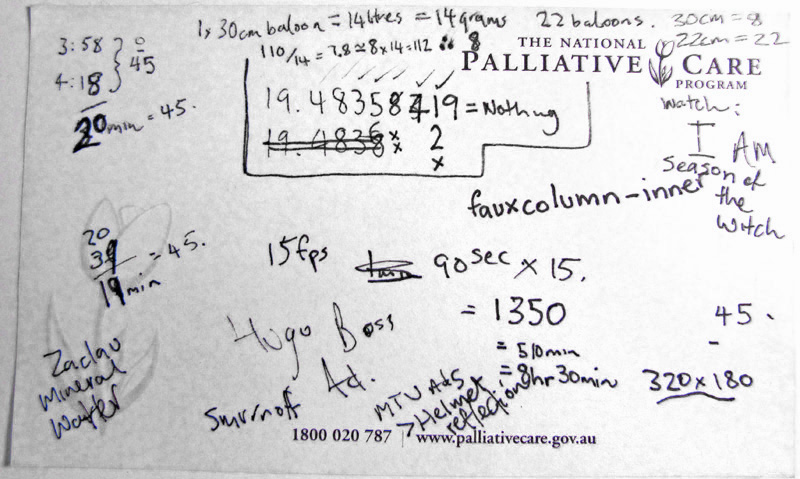 1x 30cm baloon = 14 litres = 14 grams
22 baloons.
30cm = 8
22cm = 22
110/14 = 7.8 ≈ 8 x 14 = 112 ∴ 8
3:58
4:18
0
45
20 min = 45.
THE NATIONAL
PALLIATIVE CARE
PROGRAM
19.48358719 = Nothing
19.4836
2
watch:
I AM
Season of
the
Witch
fauxcolumn-inner
20
39
19 min = 45.
15fps
1min 90 sec x 15.
= 1350
= 510min
= 8hr 30min
45.
-
320x180
Hugo Boss
Ad.
Smirnoff
MTV Ads
> Helmet
reflection
Mineral
Water
1800 020 787 | www.palliativecare.gov.au